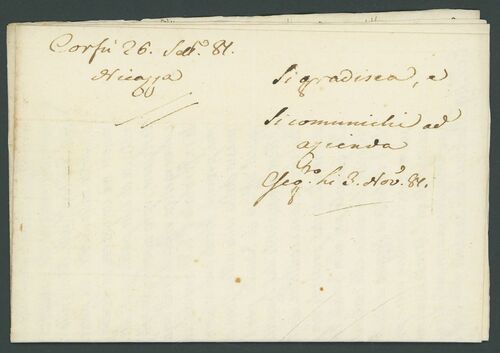 Corfù 26. Sett.º 81.
Nicazza
Si gradisca, e
Si comunichi ad
azienda
Seg. li 3. Nov.º 81.